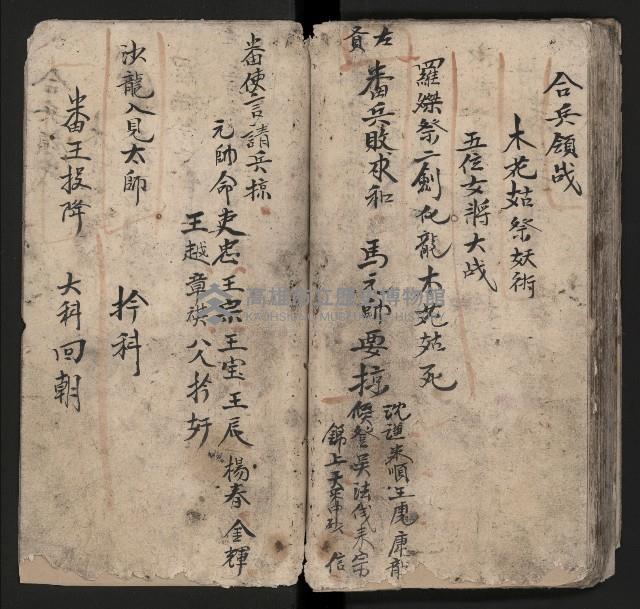 合兵領战
木花姑祭妖術
五位女將大战
羅燦祭二劍化龍木花姑死
左
貢
番兵敗求和 馬元帥要掠
沈進朱順王虎康龍
侯登吳法
錦上天
信
番使言請兵掠
元帥命吏忠王宗王宝王辰楊春金輝
王越章祺八人扲奸
沙龍入見太師 扲科
番王投降 大科回朝
高雄市立歷史博物館
KAOHSIUNG MUSEUM OF HISTORY